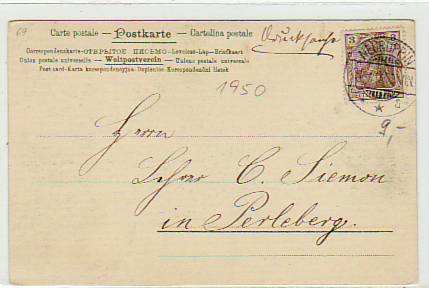 69
Carte postale — Postkarte — Cartolina postale
Drucksache
Correspondenzkarte — ОТКРЫТОЕ ПИСЬМО — Levelezö-Lap — Brefkaart
Union postale universelle — Weltpostverein — Unione postale universale
Post card — Karta korrespondencyjna — Dopisnice — Korespondenční lístek
3 3
NEURUPPIN
1950
9,-
Herrn
C. Siemon
in Perleberg.